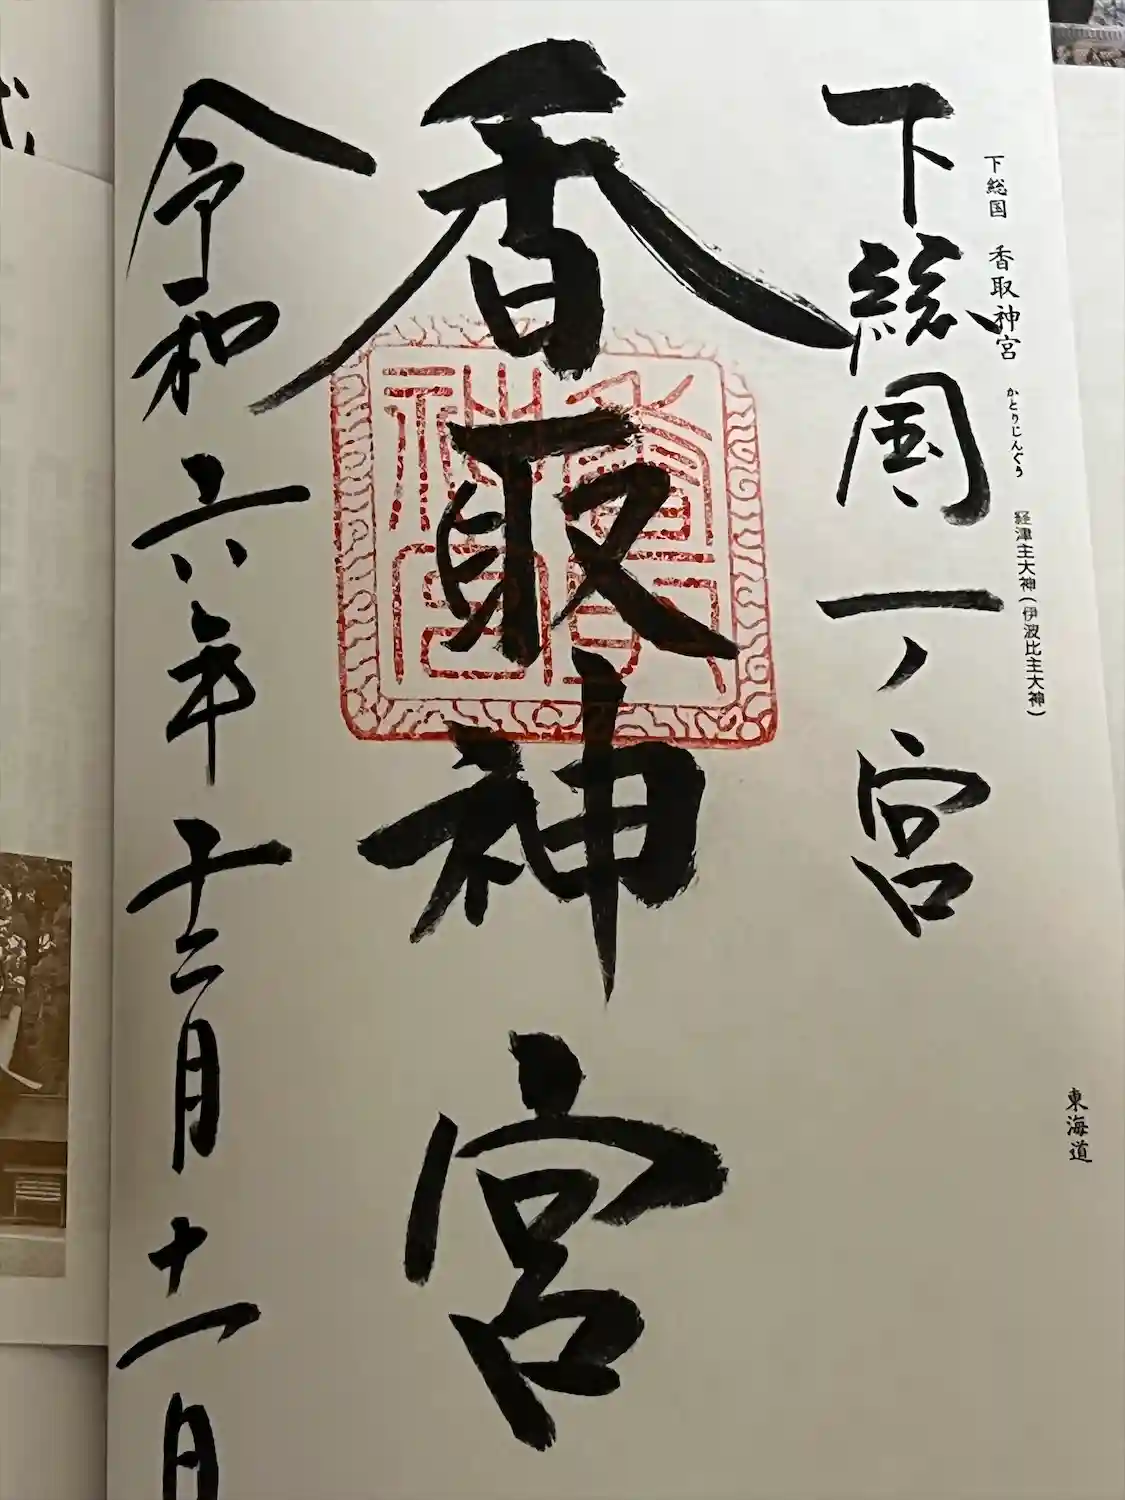 下総国 香取神宮 かとりじんぐう 経津主大神（伊波比主大神）
東海道
下総国一ノ宮
香取神宮
令和六年十二月十一日